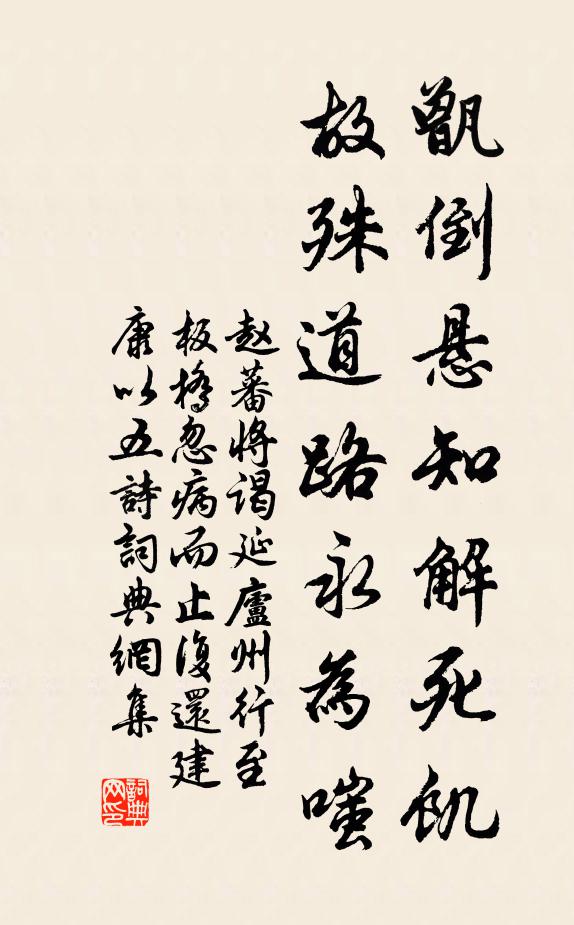 甑倒悬知解死飢
故殊道路永為嗤
赵蕃将謁延廬州行至
板橋忽病而止復還建
康以五詩詞典網集
詞典網印